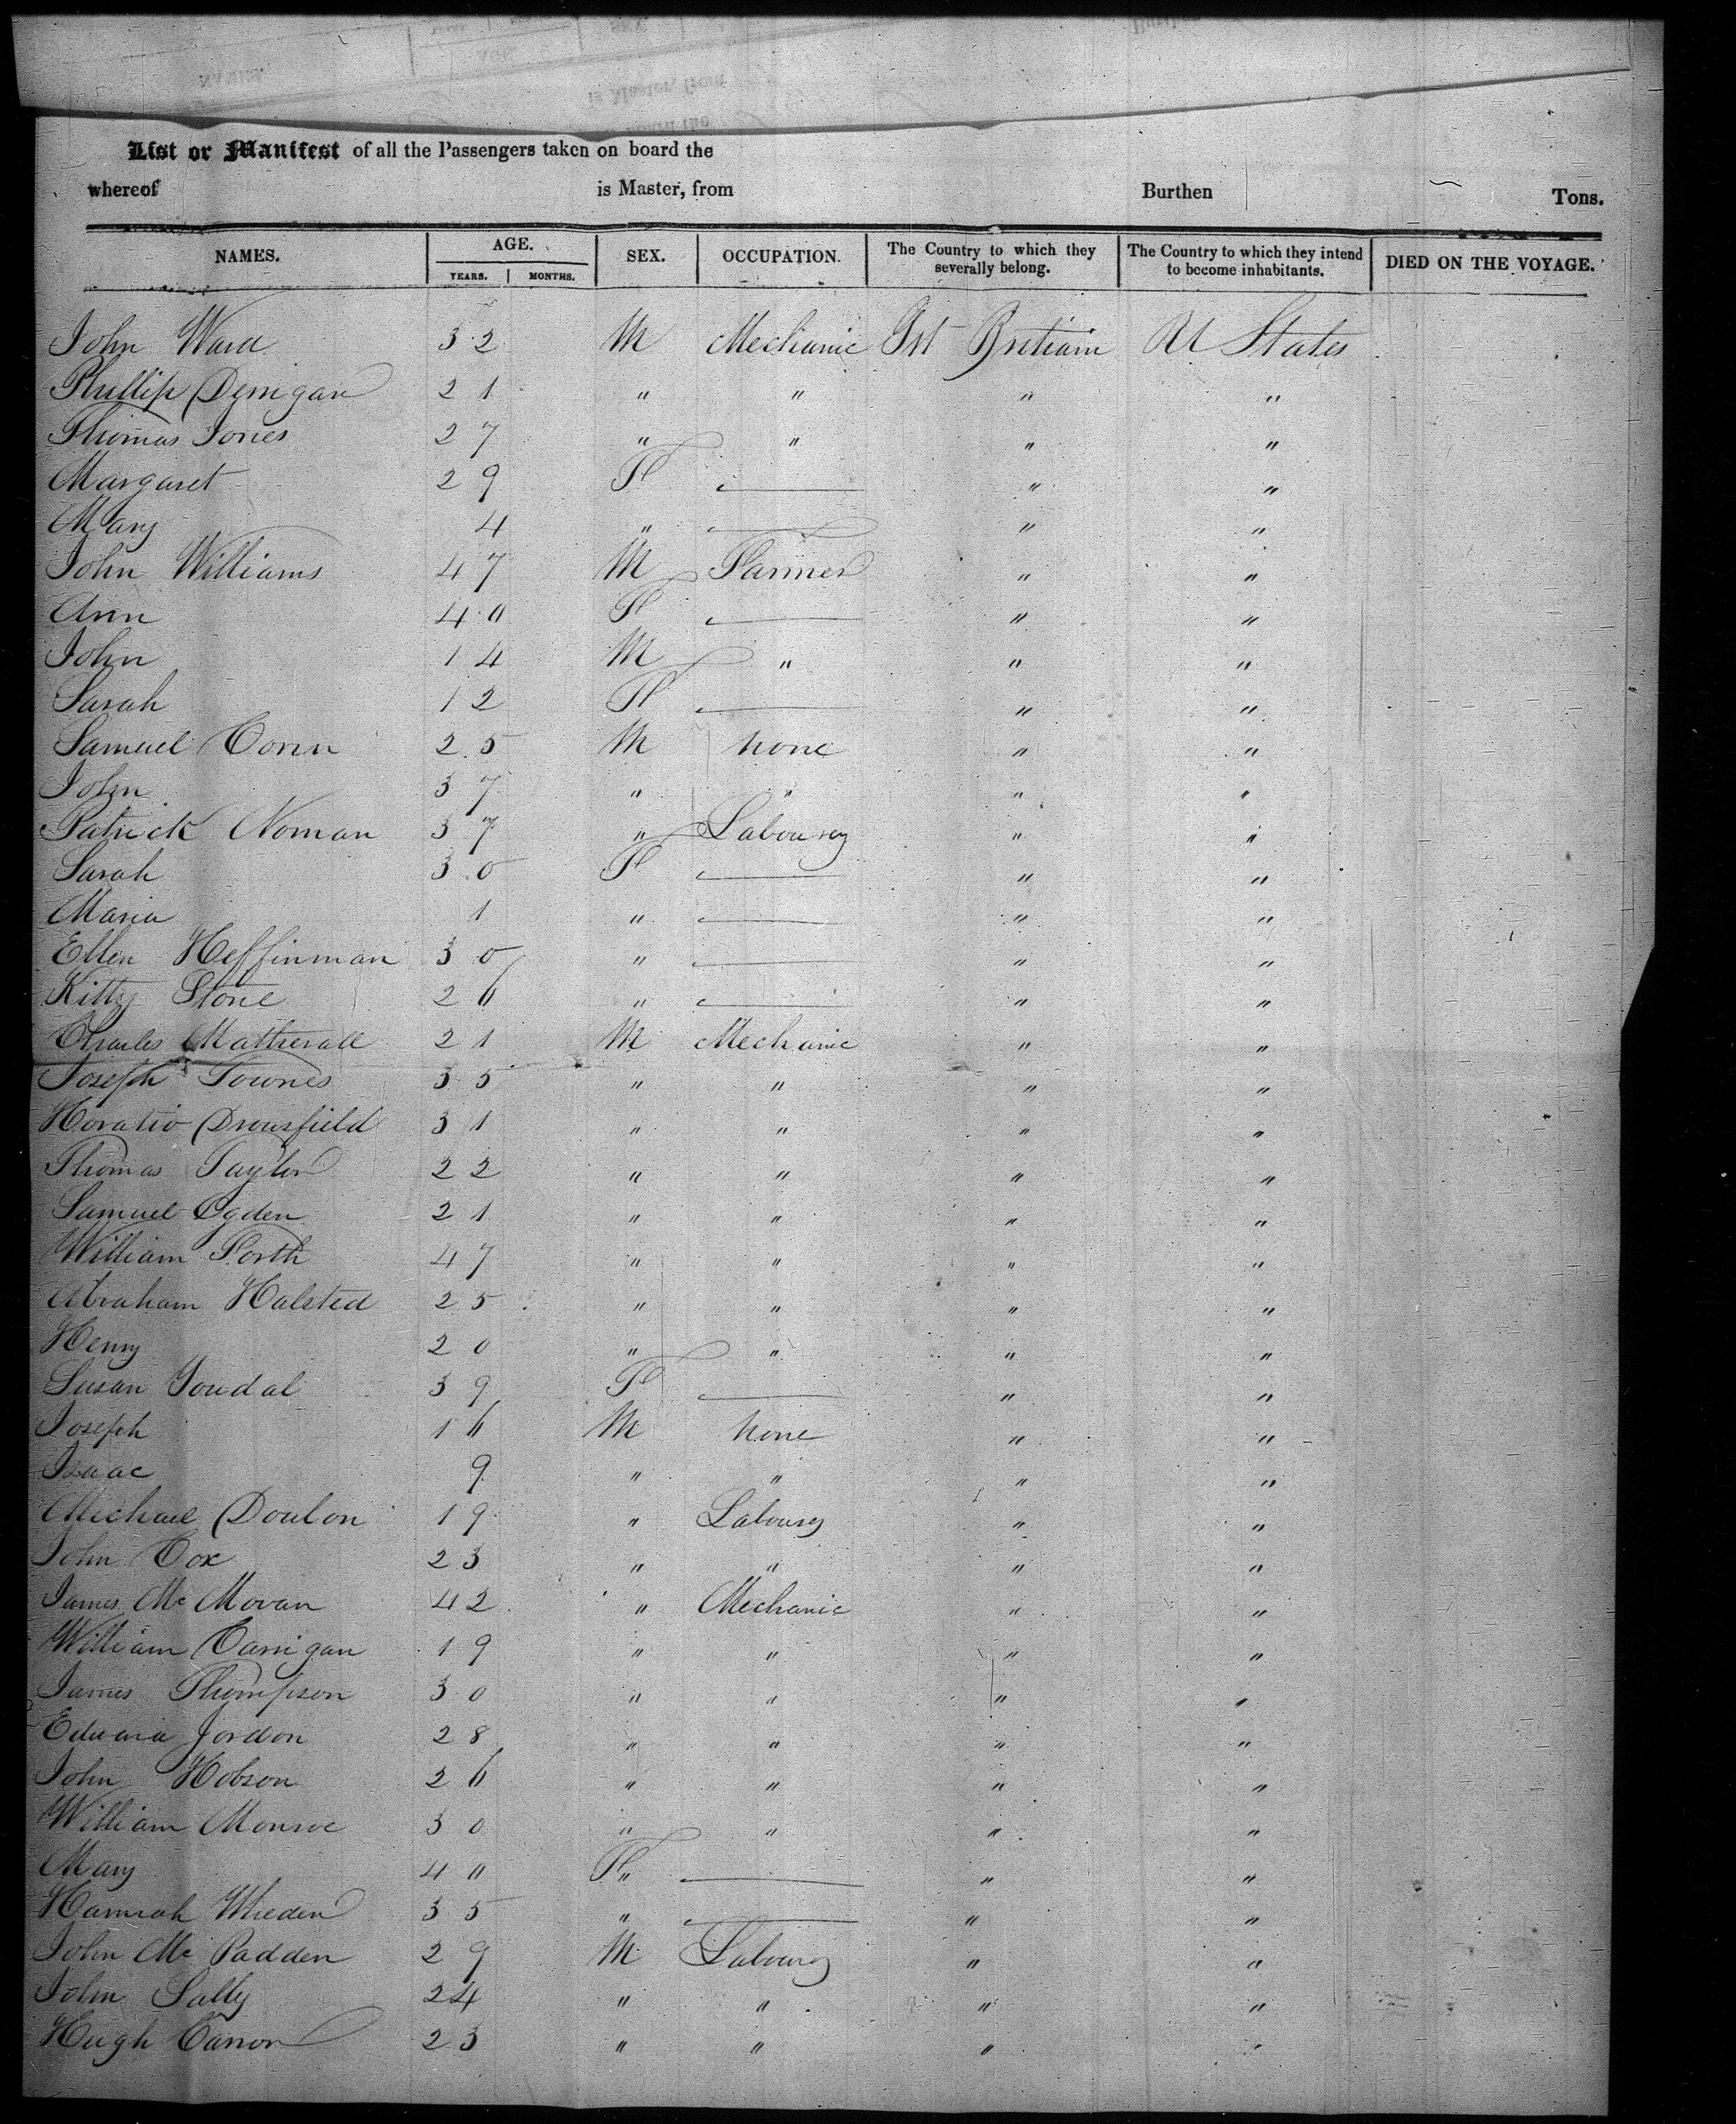 List or Manifest of all the Passengers taken on board the
whereof is Master, from Burthen Tons.
NAMES. AGE. SEX. OCCUPATION. The Country to which they severally belong. The Country to which they intend to become inhabitants. DIED ON THE VOYAGE.
YEARS. MONTHS.
John Ward 32 M Mechanic Grt Britiain U States
Phillip Denigan 21 " " " "
Thomas Jones 27 " " " "
Margaret 29 F — " "
Mary 4 " — " "
John Williams 47 M Farmer " "
Ann 40 F — " "
John 14 M " " "
Sarah 12 F — " "
Samuel Conn 25 M none " "
John 37 " " " "
Patrick Noman 37 " Labourer " "
Sarah 30 F — " "
Maria 1 " — " "
Ellen Heffinman 30 " — " "
Kitty Stone 26 " — " "
Charles Matherall 21 M Mechanic " "
Joseph Townes 35 " " " "
Horatio Drousfield 31 " " " "
Thomas Taylor 22 " " " "
Samuel Ogden 21 " " " "
William Forth 47 " " " "
Abraham Halsted 25 " " " "
Henry 20 " " " "
Susan Goudal 39 F — " "
Joseph 16 M none " "
Isaac 9 " " " "
Michael Doulon 19 " Labourer " "
John Cox 23 " " " "
James Mc Moran 42 " Mechanic " "
William Carrigan 19 " " " "
James Thompson 30 " " " "
Edward Jordon 28 " " " "
John Hobson 26 " " " "
William Monroe 30 " " " "
Mary 40 F" — " "
Hannah Wheden 35 " — " "
John Mc Padden 29 M Labourer " "
John Lally 24 " " " "
Hugh Canon 23 " " " "